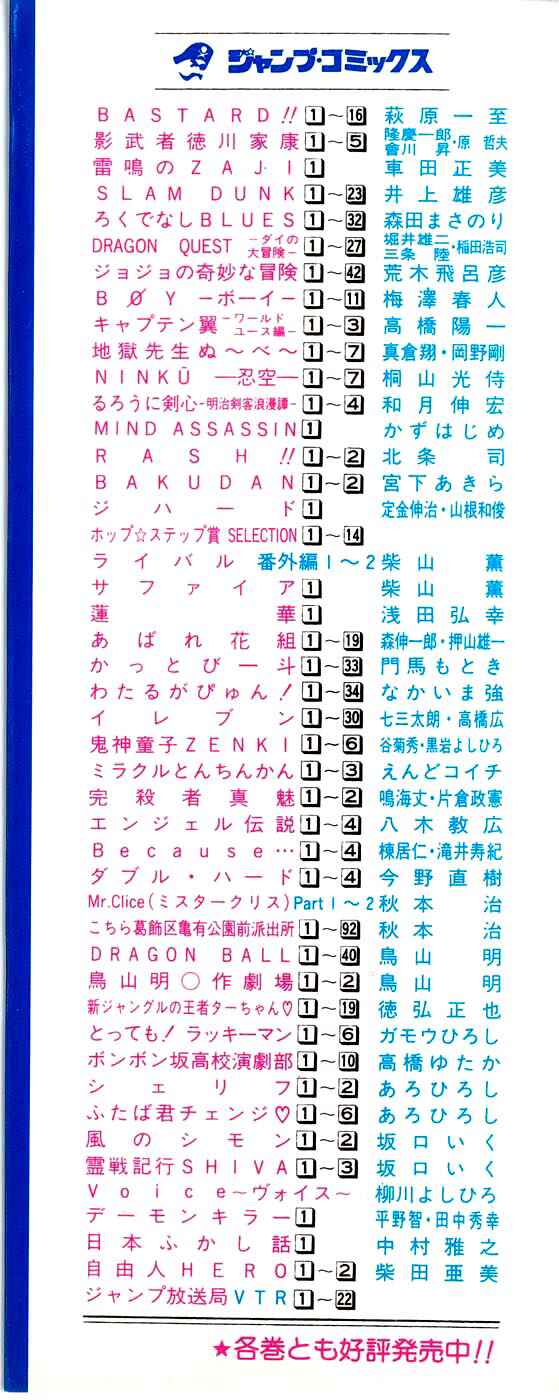 ジャンプ・コミックス
BASTARD!! 1～16 萩原一至
影武者徳川家康 1～5 隆慶一郎・會川昇・原哲夫
雷鳴のZAJI 1 車田正美
SLAM DUNK 1～23 井上雄彦
ろくでなしBLUES 1～32 森田まさのり
DRAGON QUEST －ダイの大冒険－ 1～27 堀井雄二・三条陸・稲田浩司
ジョジョの奇妙な冒険 1～42 荒木飛呂彦
BØY －ボーイ－ 1～11 梅澤春人
キャプテン翼 －ワールドユース編－ 1～3 高橋陽一
地獄先生ぬ～べ～ 1～7 真倉翔・岡野剛
NINKŪ ―忍空― 1～7 桐山光侍
るろうに剣心－明治剣客浪漫譚－ 1～4 和月伸宏
MIND ASSASSIN 1 かずはじめ
RASH!! 1～2 北条司
BAKUDAN 1～2 宮下あきら
ジハード 1 定金伸治・山根和俊
ホップ☆ステップ賞 SELECTION 1～14
ライバル 番外編1～2 柴山薫
サファイア 1 柴山薫
蓮華 1 浅田弘幸
あばれ花組 1～19 森伸一郎・押山雄一
かっとび一斗 1～33 門馬もとき
わたるがぴゅん! 1～34 なかいま強
イレブン 1～30 七三太朗・高橋広
鬼神童子ZENKI 1～6 谷菊秀・黒岩よしひろ
ミラクルとんちんかん 1～3 えんどコイチ
完殺者真魅 1～2 鳴海丈・片倉政憲
エンジェル伝説 1～4 八木教広
Because… 1～4 棟居仁・滝井寿紀
ダブル・ハード 1～4 今野直樹
Mr.Clice(ミスタークリス) Part 1～2 秋本治
こちら葛飾区亀有公園前派出所 1～92 秋本治
DRAGON BALL 1～40 鳥山明
鳥山明○作劇場 1～2 鳥山明
新ジャングルの王者ターちゃん♡ 1～19 徳弘正也
とっても! ラッキーマン 1～6 ガモウひろし
ボンボン坂高校演劇部 1～10 高橋ゆたか
シェリフ 1～2 あろひろし
ふたば君チェンジ♡ 1～6 あろひろし
風のシモン 1～2 坂口いく
霊戦記行SHIVA 1～3 坂口いく
Voice～ヴォイス～ 柳川よしひろ
デーモンキラー 1 平野智・田中秀幸
日本ふかし話 1 中村雅之
自由人HERO 1～2 柴田亜美
ジャンプ放送局VTR 1～22
★各巻とも好評発売中!!